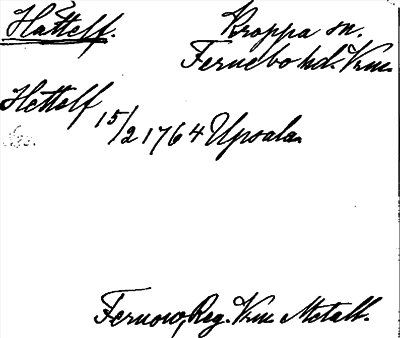 Hättelf. Kroppa sn.
Fernebo hd. Vrm.
Hettelf 15/2 1764 Upsala
Fernow, Reg. Vrm Metall.